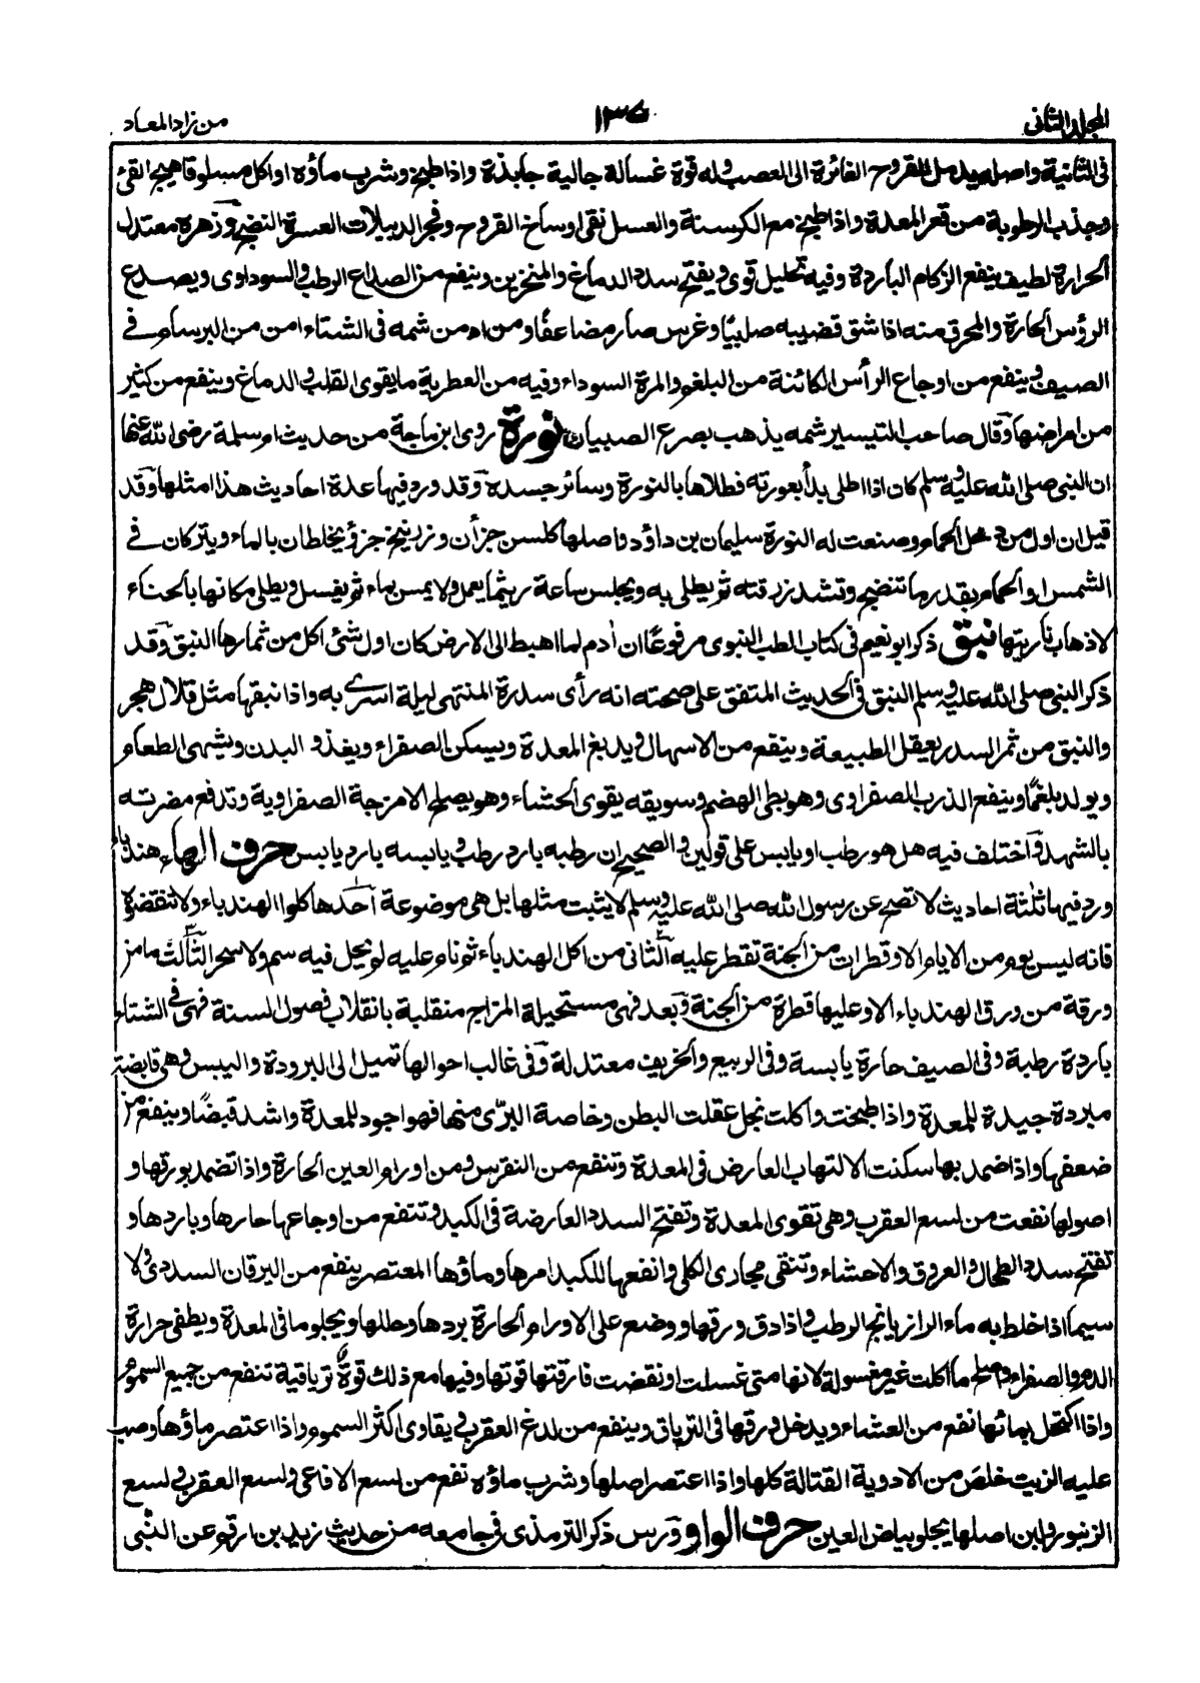 المجلد الثانى
١٣٥
من زاد المعاد
فى الثانية واصله يدمل القروح الغائرة الى العصب وله قوة غسالة جالية جابذة واذا طبخ وشرب ماؤه او اكل مسلوقا هيج القئ
وجذب الرطوبة من قعر المعدة واذا طبخ مع الكرسنة والعسل نقى اوساخ القروح وفجر الدبيلات العسرة النضج وزهره معتدل
الحرارة لطيف ينفع الزكام الباردة وفيه تحليل قوى ويفتح سدد الدماغ والمنخرين وينفع من الصداع الرطب والسوداوى ويصدع
الرؤس الحارة والمحرق منه اذا شق قضيبه صليبًا وغرس صار مضاعفًا ومن ادمن شمه فى الشتاء امن من البرسام فى
الصيف وينفع من اوجاع الرأس الكائنة من البلغم والمرة السوداء وفيه من العطرية ما يقوى القلب والدماغ وينفع من كثير
من امراضها وقال صاحب التيسير شمه يذهب بصرع الصبيان نورة روى ابن ماجة من حديث ام سلمة رضى الله عنها
ان النبى صلى الله عليه وسلم كان اذا اطلى بدأ بعورته فطلاها بالنورة وسائر جسده وقد ورد فيها عدة احاديث هذا امثلها وقد
قيل ان اول من دخل الحمام وصنعت له النورة سليمان بن داؤد واصلها كلس جزأن وزرنيخ جزؤ يخلطان بالماء ويتركان فى
الشمس او الحمام بقدر ما تنضج وتشتد زرقته ثم يطلى به ويجلس ساعة ريثما يعمل ولا يمس بماء ثم يغسل ويطلى مكانها بالحناء
لاذهاب ناريتها نبق ذكر ابو نعيم فى كتاب الطب النبوى مرفوعًا ان أدم لما اهبط الى الارض كان اول شئ اكل من ثمارها النبق وقد
ذكر النبى صلى الله عليه وسلم النبق فى الحديث المتفق على صحته انه رأى سدرة المنتهى ليلة اسرى به واذا نبقها مثل قلال هجر
والنبق من ثمر السدر يعقل الطبيعة وينفع من الاسهال ويدبغ المعدة ويسكن الصفراء ويغذو البدن ويشهى الطعام
ويولد بلغمًا وينفع الذرب الصفراوى وهو بطئ الهضم وسويقه يقوى الحشاء وهو يصلح الامزجة الصفراوية وتدفع مضرته
بالشهد واختلف فيه هل هو رطب او يابس على قولين والصحيح ان رطبه بارد رطب ويابسه بارد يابس حرف الهاء هندباء
ورد فيها ثلثة احاديث لا تصح عن رسول الله صلى الله عليه وسلم لا يثبت مثلها بل هى موضوعة احدها كلوا الهندباء ولا تنفضوه
فانه ليس يوم من الايام الا وقطرات من الجنة تقطر عليه الثانى من اكل الهندباء ثم نام عليه لم يحل فيه سم ولا سحر الثالث ما من
ورقة من ورق الهندباء الا وعليها قطرة من الجنة وبعد فهى مستحيلة المزاج منقلبة بانقلاب فصول السنة فهى فى الشتاء
باردة رطبة وفى الصيف حارة يابسة وفى الربيع والخريف معتدلة وفى غالب احوالها تميل الى البرودة واليبس وهى قابضة
مبردة جيدة للمعدة واذا طبخت واكلت بخل عقلت البطن وخاصة البرّى منها فهو اجود للمعدة واشد قبضًا وينفع من
ضعفها واذا ضمد بها سكنت الالتهاب العارض فى المعدة وتنفع من النقرس ومن اورام العين الحارة واذا تضمد بورقها و
اصولها نفعت من لسع العقرب وهى تقوى المعدة وتفتح السدد العارضة فى الكبد وتنفع من اوجاعها حارها وباردها و
تفتح سدد الطحال والعروق والاحشاء وتنقى مجارى الكلى وانفعها للكبد امرها وماؤها المعتصر ينفع من اليرقان السددى ولا
سيما اذا خلط به ماء الرازيانج الرطب واذا دق ورقها ووضع على الاورام الحارة بردها وحللها ويجلو ما فى المعدة ويطفى حرارة
الدم والصفراء واصلح ما اكلت غير مغسولة لانها متى غسلت او نفضت فارقتها قوتها وفيها مع ذلك قوة ترياقية تنفع من جميع السموم
واذا اكتحل بمائها نفع من العشاء ويدخل ورقها فى الترياق وينفع من لدغ العقرب ويقاوى اكثر السموم واذا اعتصر ماؤها وصب
عليه الزيت خلص من الادوية القتالة كلها واذا اعتصر اصلها وشرب ماؤه نفع من لسع الافاعى ولسع العقرب ولسع
الزنبور ولبن اصلها يجلو بياض العين حرف الواو ورس ذكر الترمذى فى جامعه من حديث زيد بن ارقم عن النبى